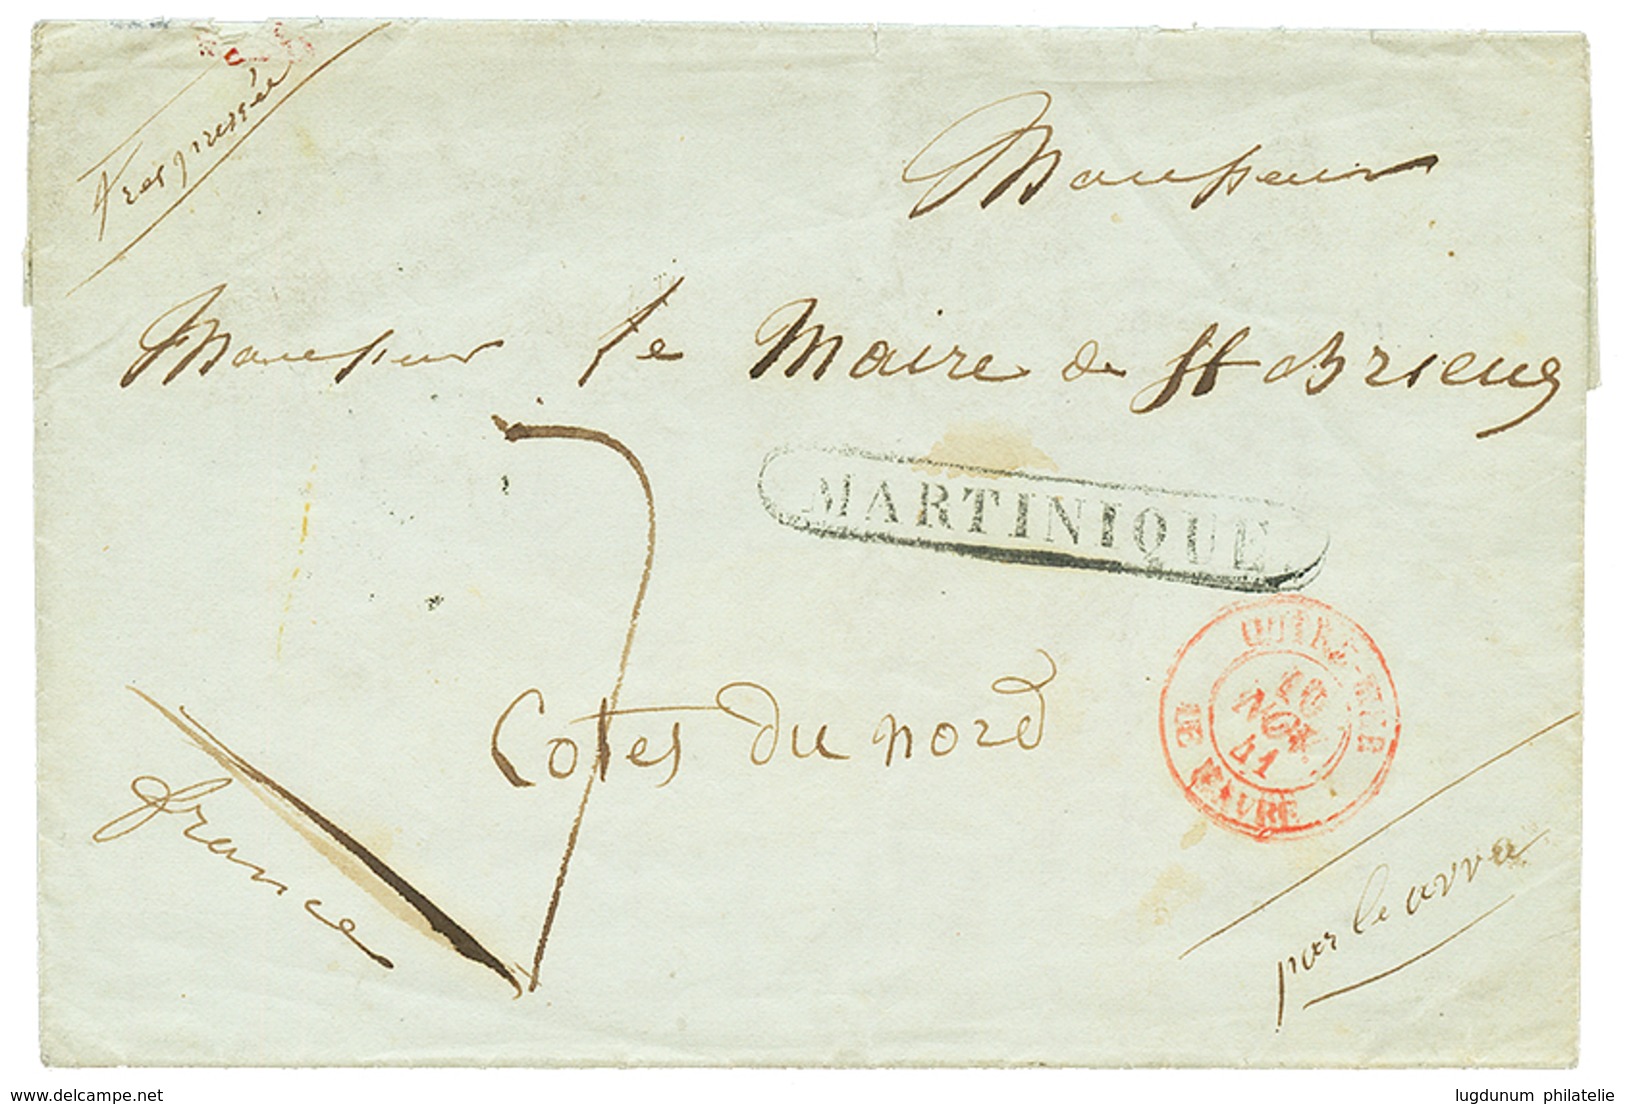 Très pressée
Monsieur
Monsieur le Maire de St Brieux
MARTINIQUE
OUTRE-MER
10
NOV
41
LE HAVRE
7
Cotes du nord
france
par le avre
www.delcampe.net
lugdunum philatelie